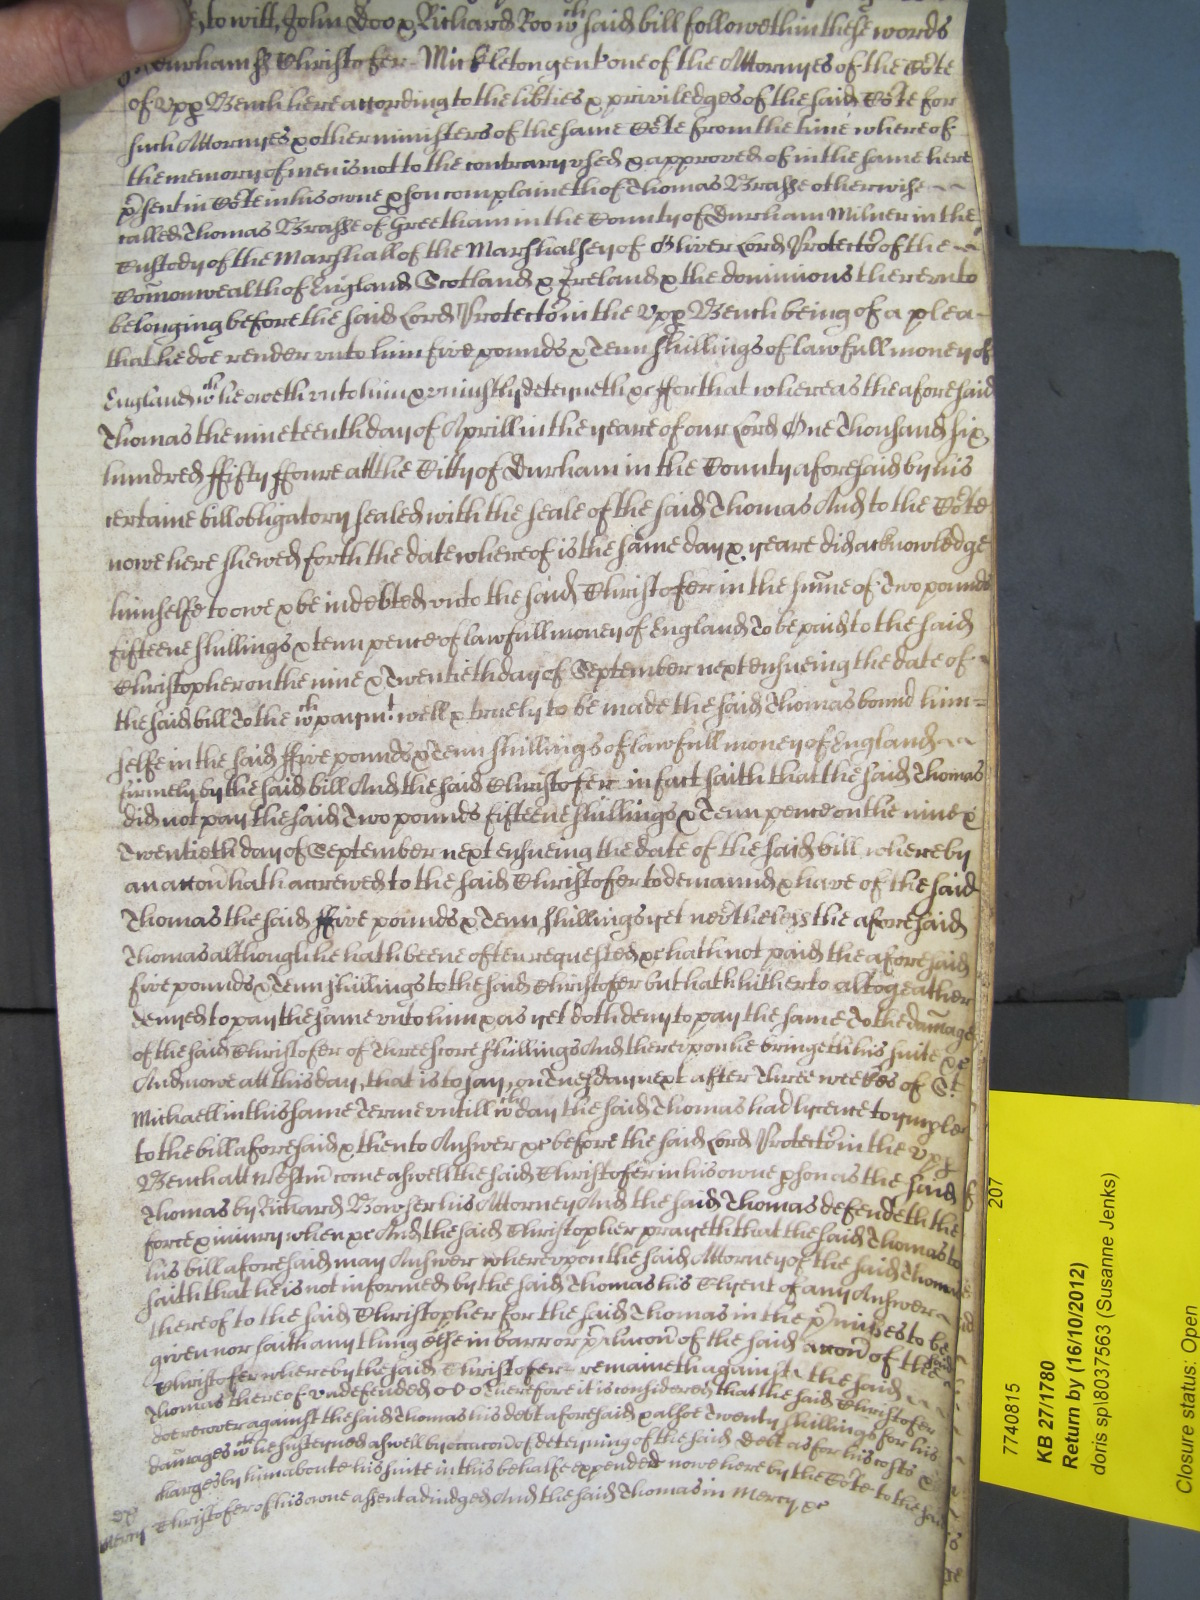 to witt, John Doo & Richard Roo wch said bill followeth in these words
Durham ss Christofer Mickleton gent one of the Attornyes of the Cõte
of Vpp Bench here according to the lib̃ties & priviledges of the said Cõte for
such Attornyes & other ministers of the same Cõte from the time whereof
the memory of men is not to the contrary vsed & approved of in the same here
p̃sent in Cõte in his owne p̲son complaineth of Thomas Brasse otherwise
called Thomas Brasse of Greetham in the County of Durham Milner in the
Custody of the Marshall of the Marshalsey of Oliver Lord Protectõ of the
Com̃onwealth of England Scotland & Ireland & the dominions therevnto
belonging before the said Lord Protectõ in the Vpp Bench being of a plea
that he doe render vnto him five pounds & Tenn shillings of lawfull money of
England wch he oweth vnto him & vniustly deteyneth &c ffor that whereas the aforesaid
Thomas the nineteenth day of Aprill in the yeare of our Lord One Thousand six
hundred ffifty ffoure att the Citty of Durham in the County aforesaid by his
certaine bill obligatory sealed with the seale of the said Thomas And to the Cõte
nowe here shewed forth the date whereof is the same day & yeare did acknowledge
himselfe to owe & be indebted vnto the said Christofer in the sum̃e of Two pounds
fifteene shillings & tenn pence of lawfull money of England To be paid to the said
Christopher on the nine & Twentieth day of September next ensueing the date of
the said bill To the wch paymt well & truely to be made the said Thomas bound him=
selfe in the said ffive pounds & Tenn shillings of lawfull money of England
firmely by the said bill And the said Christofer in fact saith that the said Thomas
did not pay the said Two pounds fifteene shillings & Tenn pence on the nine &
Twentieth day of September next ensueing the date of the said bill whereby
an accoñ hath accrewed to the said Christofer to demaund & have of the said
Thomas the said ffive pounds & Tenn shillings yet nev̾theless the aforesaid
Thomas although he hath beene often requested &c hath not paid the aforesaid
five pounds & Tenn shillings to the said Christofer but hath hitherto altogeather
denyed to pay the same vnto him & as yet doth deny to pay the same To the dam̃age
of the said Christofer of Threescore shillings And therevpon he bringeth his suite &c
And nowe att this day, that is to say, on Tuesday next after Three weekes of St
Michaell in this same Terme vntill wch day the said Thomas had lycence to imple
to the bill aforesaid & then to Answer &c before the said Lord Protectõ in the Vpp
Bench att Westm̃ come aswell the said Christofer in his owne p̲son as the said
Thomas by Richard Bowser his Attorney And the said Thomas defendeth the
force & iniury when &c And the said Christopher prayeth that the said Thomas to
his bill aforesaid may Answer wherevpon the said Attorney of the said Thomas
saith that he is not informed by the said Thomas his Clyent of any Answer
thereof to the said Christopher for the said Thomas in the p̃misses to be
given nor saith any thing else in barr or p̃clucoñ of the said accoñ of the
Christofer whereby the said Christofer remaineth against the said
Thomas thereof vndefended Therefore it is considered that the said Christofer
doe recover against the said Thomas his debt aforesaid & alsoe Twenty shillings for his
dam̃ages wch he susteyned aswell by occacoñ of deteyning of the said Debt as for his costs &
charges by him aboute his suite in this behalfe expended nowe here by the Cõte to the said
Christofer of his owne assent adiudged And the said Thomas in Mercy &c
Mercy
207
7740815
KB 27/1780
Return by (16/10/2012)
doris spl8037563 (Susanne Jenks)
Closure status: Open